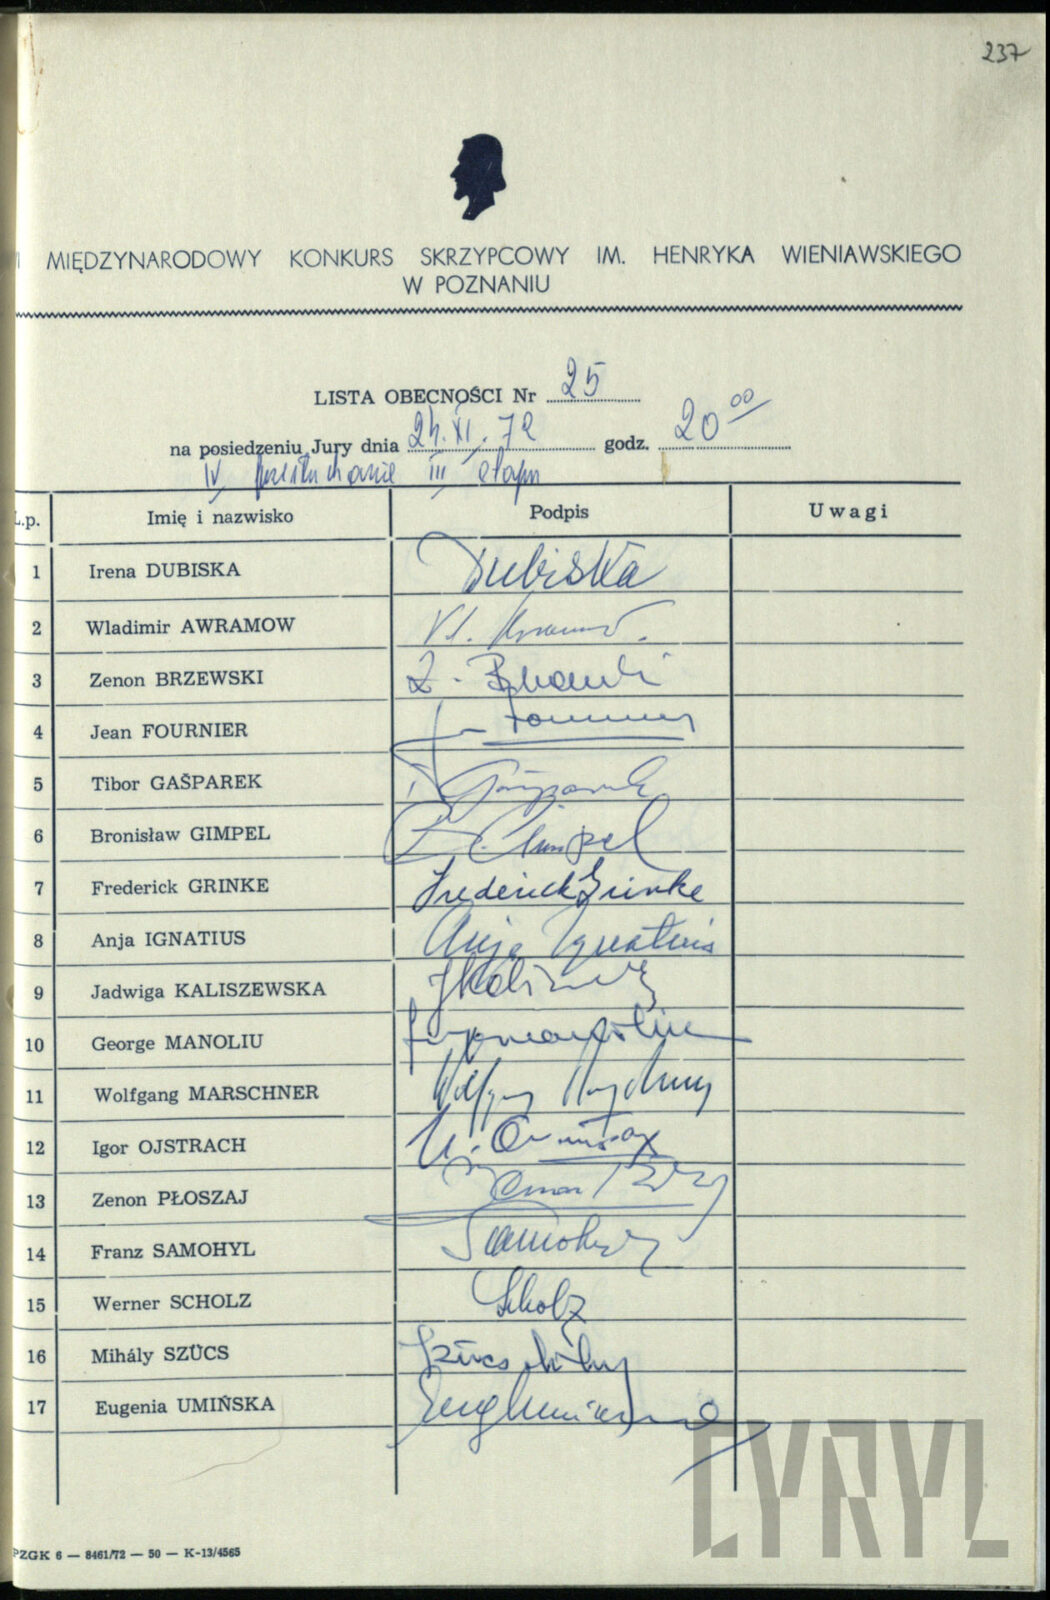 237
I MIĘDZYNARODOWY KONKURS SKRZYPCOWY IM. HENRYKA WIENIAWSKIEGO
W POZNANIU
LISTA OBECNOŚCI Nr 25
na posiedzeniu Jury dnia 24.XI.72 godz. 20⁰⁰
IV przesłuchanie III etapu
L.p. Imię i nazwisko Podpis Uwagi
1 Irena DUBISKA Dubiska
2 Wladimir AWRAMOW Vl.
3 Zenon BRZEWSKI Z. Brzewski
4 Jean FOURNIER Fournier
5 Tibor GAŠPAREK Gašparek
6 Bronisław GIMPEL B. Gimpel
7 Frederick GRINKE Frederick Grinke
8 Anja IGNATIUS Anja Ignatius
9 Jadwiga KALISZEWSKA JKaliszewska
10 George MANOLIU
11 Wolfgang MARSCHNER Wolfgang Marschner
12 Igor OJSTRACH
13 Zenon PŁOSZAJ Zenon
14 Franz SAMOHYL Samohyl
15 Werner SCHOLZ Scholz
16 Mihály SZÜCS Szücs Mihály
17 Eugenia UMIŃSKA EugUmińska
PZGK 6 — 8461/72 — 50 — K-13/4565
CYRYL